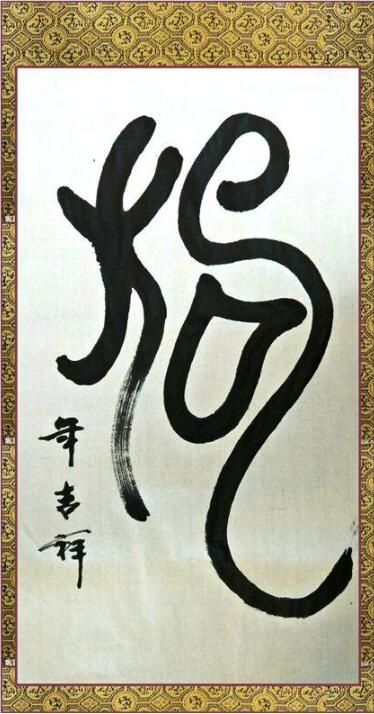 狗
年吉祥